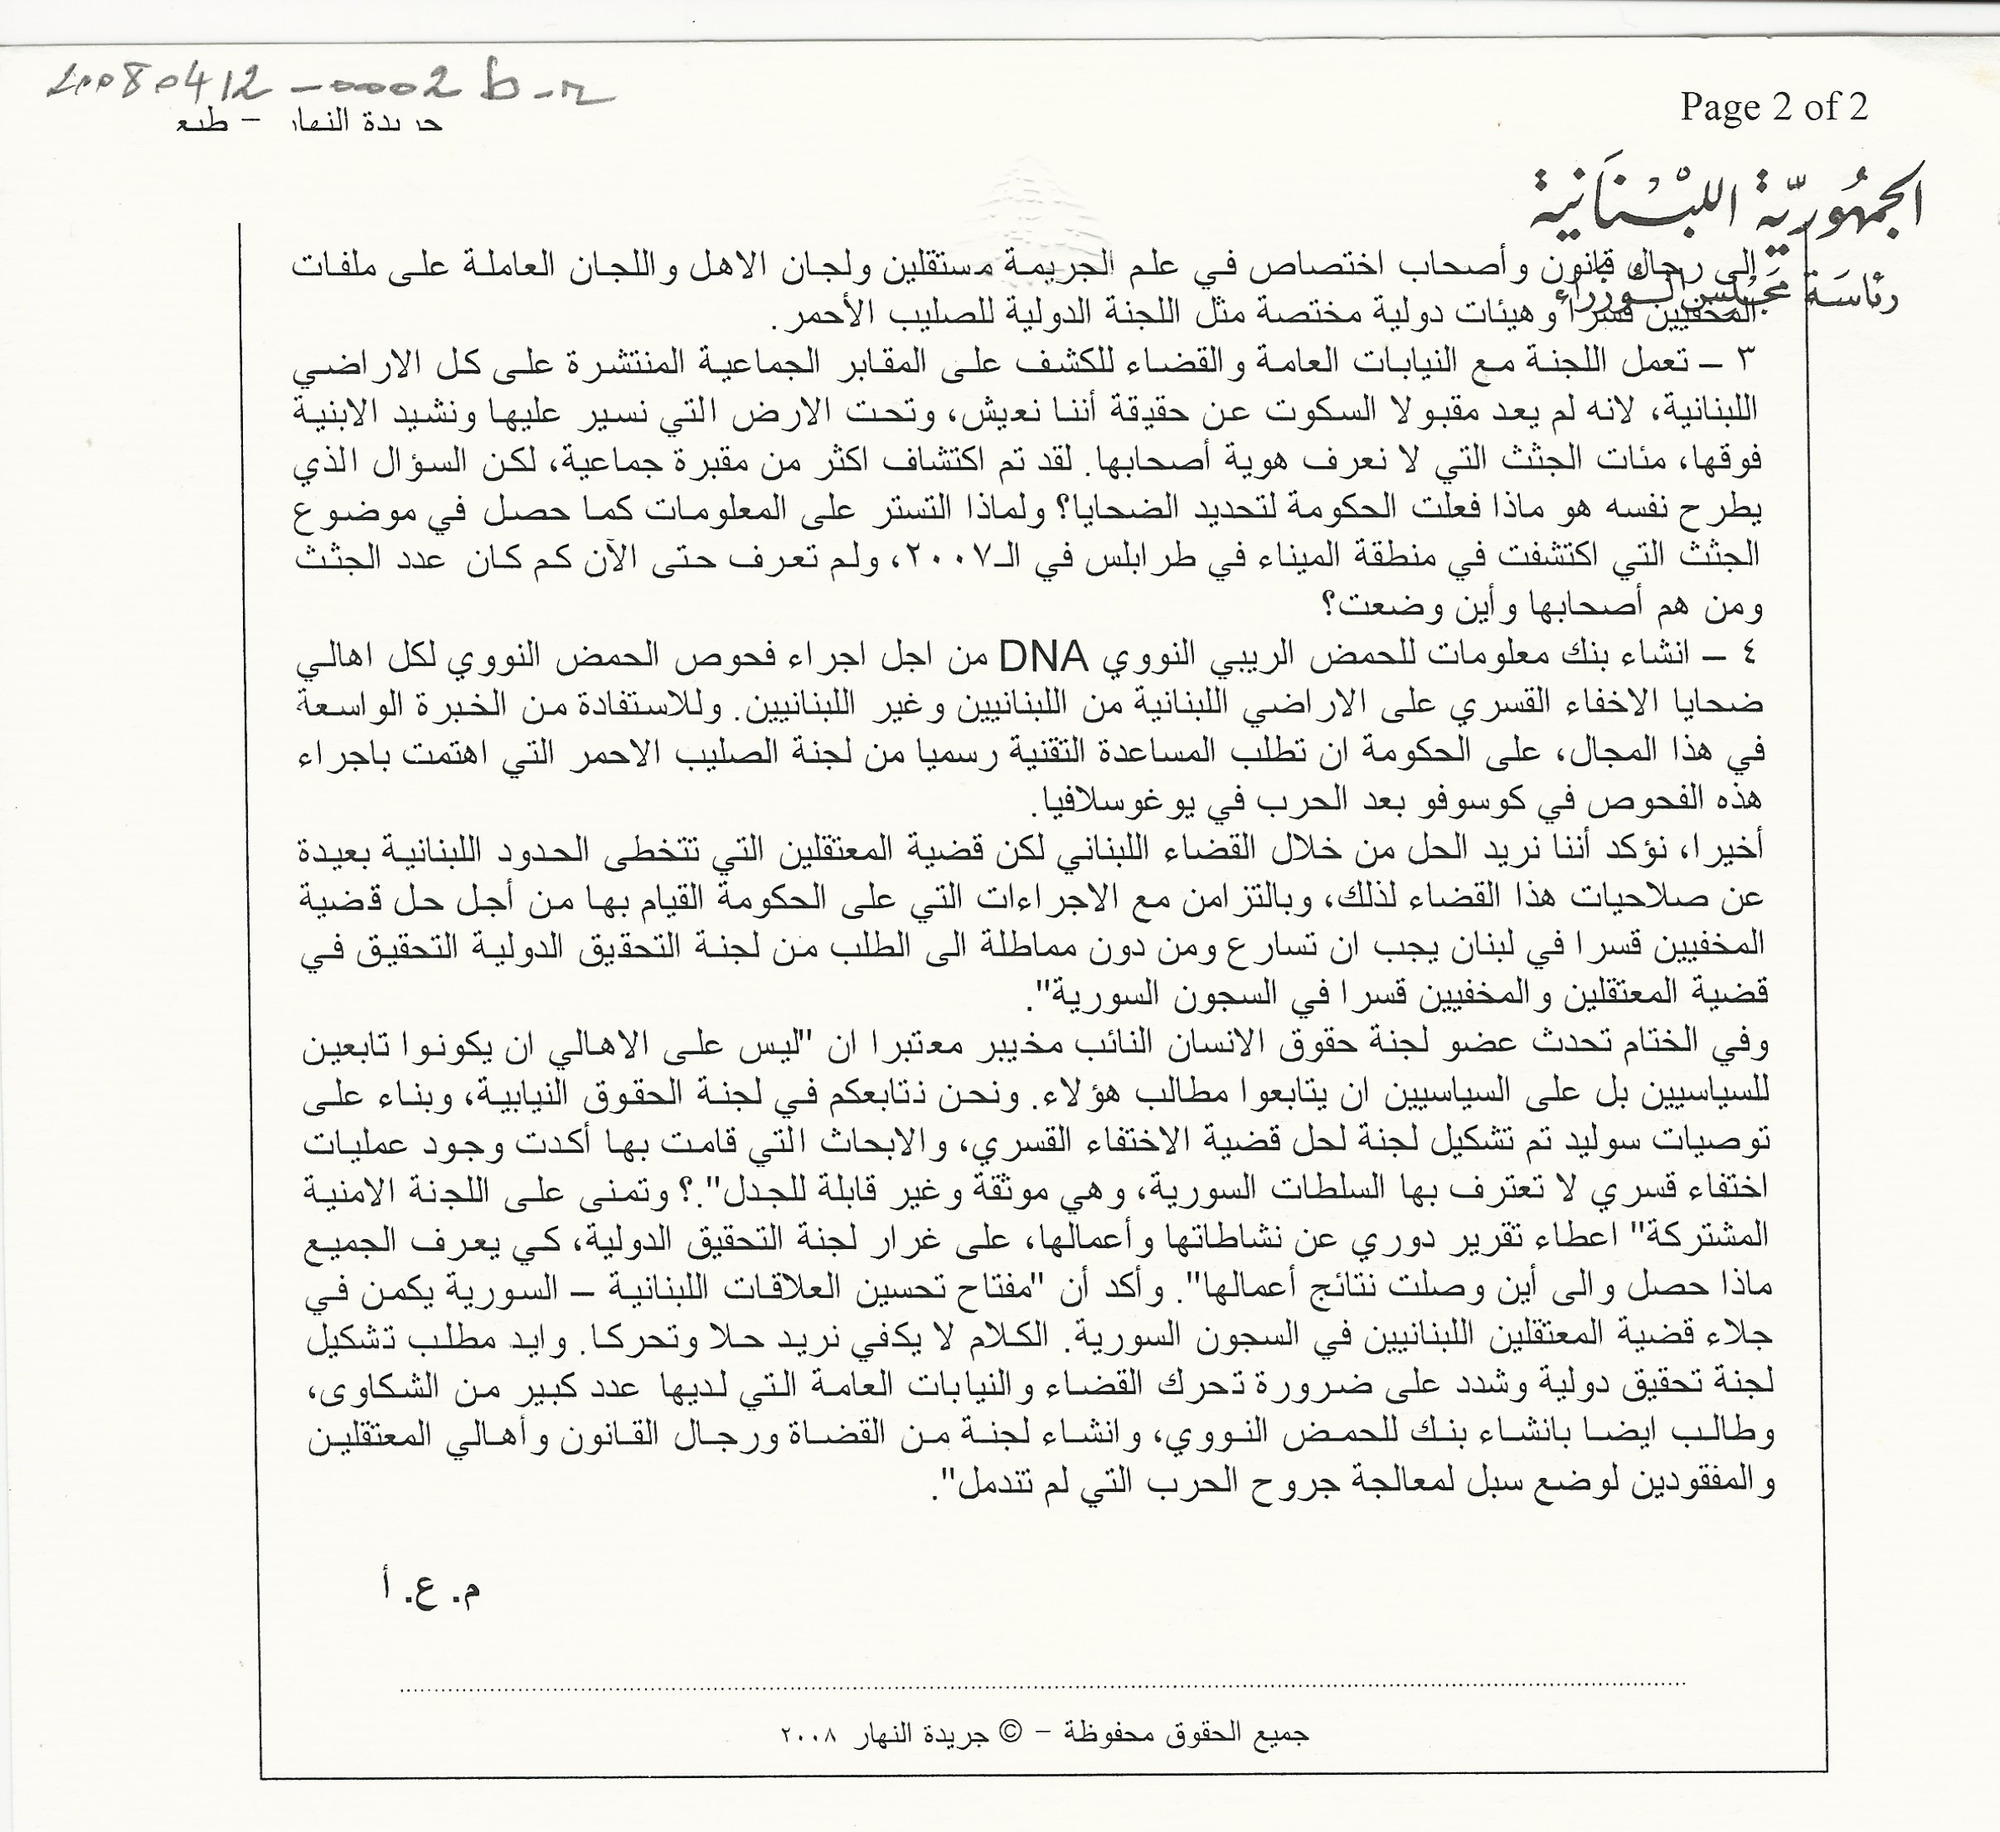 20080412-0002 b-r
جريدة النهار - طبع
Page 2 of 2
الجمهوريّة اللبْنَانية
رئاسَة مجَلس الوزراء
إلى رجال قانون وأصحاب اختصاص في علم الجريمة مستقلين ولجان الاهل واللجان العاملة على ملفات
المخفيين قسرا وهيئات دولية مختصة مثل اللجنة الدولية للصليب الأحمر.
٣ – تعمل اللجنة مع النيابات العامة والقضاء للكشف على المقابر الجماعية المنتشرة على كل الاراضي
اللبنانية، لانه لم يعد مقبولا السكوت عن حقيقة أننا نعيش، وتحت الارض التي نسير عليها ونشيد الابنية
فوقها، مئات الجثث التي لا نعرف هوية أصحابها. لقد تم اكتشاف اكثر من مقبرة جماعية، لكن السؤال الذي
يطرح نفسه هو ماذا فعلت الحكومة لتحديد الضحايا؟ ولماذا التستر على المعلومات كما حصل في موضوع
الجثث التي اكتشفت في منطقة الميناء في طرابلس في الـ٢٠٠٧، ولم تعرف حتى الآن كم كان عدد الجثث
ومن هم أصحابها وأين وضعت؟
٤ – انشاء بنك معلومات للحمض الريبي النووي DNA من اجل اجراء فحوص الحمض النووي لكل اهالي
ضحايا الاخفاء القسري على الاراضي اللبنانية من اللبنانيين وغير اللبنانيين. وللاستفادة من الخبرة الواسعة
في هذا المجال، على الحكومة ان تطلب المساعدة التقنية رسميا من لجنة الصليب الاحمر التي اهتمت باجراء
هذه الفحوص في كوسوفو بعد الحرب في يوغوسلافيا.
أخيرا، نؤكد أننا نريد الحل من خلال القضاء اللبناني لكن قضية المعتقلين التي تتخطى الحدود اللبنانية بعيدة
عن صلاحيات هذا القضاء لذلك، وبالتزامن مع الاجراءات التي على الحكومة القيام بها من أجل حل قضية
المخفيين قسرا في لبنان يجب ان تسارع ومن دون مماطلة الى الطلب من لجنة التحقيق الدولية التحقيق في
قضية المعتقلين والمخفيين قسرا في السجون السورية".
وفي الختام تحدث عضو لجنة حقوق الانسان النائب مخيبر معتبرا ان "ليس على الاهالي ان يكونوا تابعين
للسياسيين بل على السياسيين ان يتابعوا مطالب هؤلاء. ونحن نتابعكم في لجنة الحقوق النيابية، وبناء على
توصيات سوليد تم تشكيل لجنة لحل قضية الاختفاء القسري، والابحاث التي قامت بها أكدت وجود عمليات
اختفاء قسري لا تعترف بها السلطات السورية، وهي موثقة وغير قابلة للجدل".؟ وتمنى على اللجنة الامنية
المشتركة" اعطاء تقرير دوري عن نشاطاتها وأعمالها، على غرار لجنة التحقيق الدولية، كي يعرف الجميع
ماذا حصل والى أين وصلت نتائج أعمالها". وأكد أن "مفتاح تحسين العلاقات اللبنانية – السورية يكمن في
جلاء قضية المعتقلين اللبنانيين في السجون السورية. الكلام لا يكفي نريد حلا وتحركا. وايد مطلب تشكيل
لجنة تحقيق دولية وشدد على ضرورة تحرك القضاء والنيابات العامة التي لديها عدد كبير من الشكاوى،
وطالب ايضا بانشاء بنك للحمض النووي، وانشاء لجنة من القضاة ورجال القانون وأهالي المعتقلين
والمفقودين لوضع سبل لمعالجة جروح الحرب التي لم تندمل".
م. ع. أ
جميع الحقوق محفوظة - © جريدة النهار ٢٠٠٨